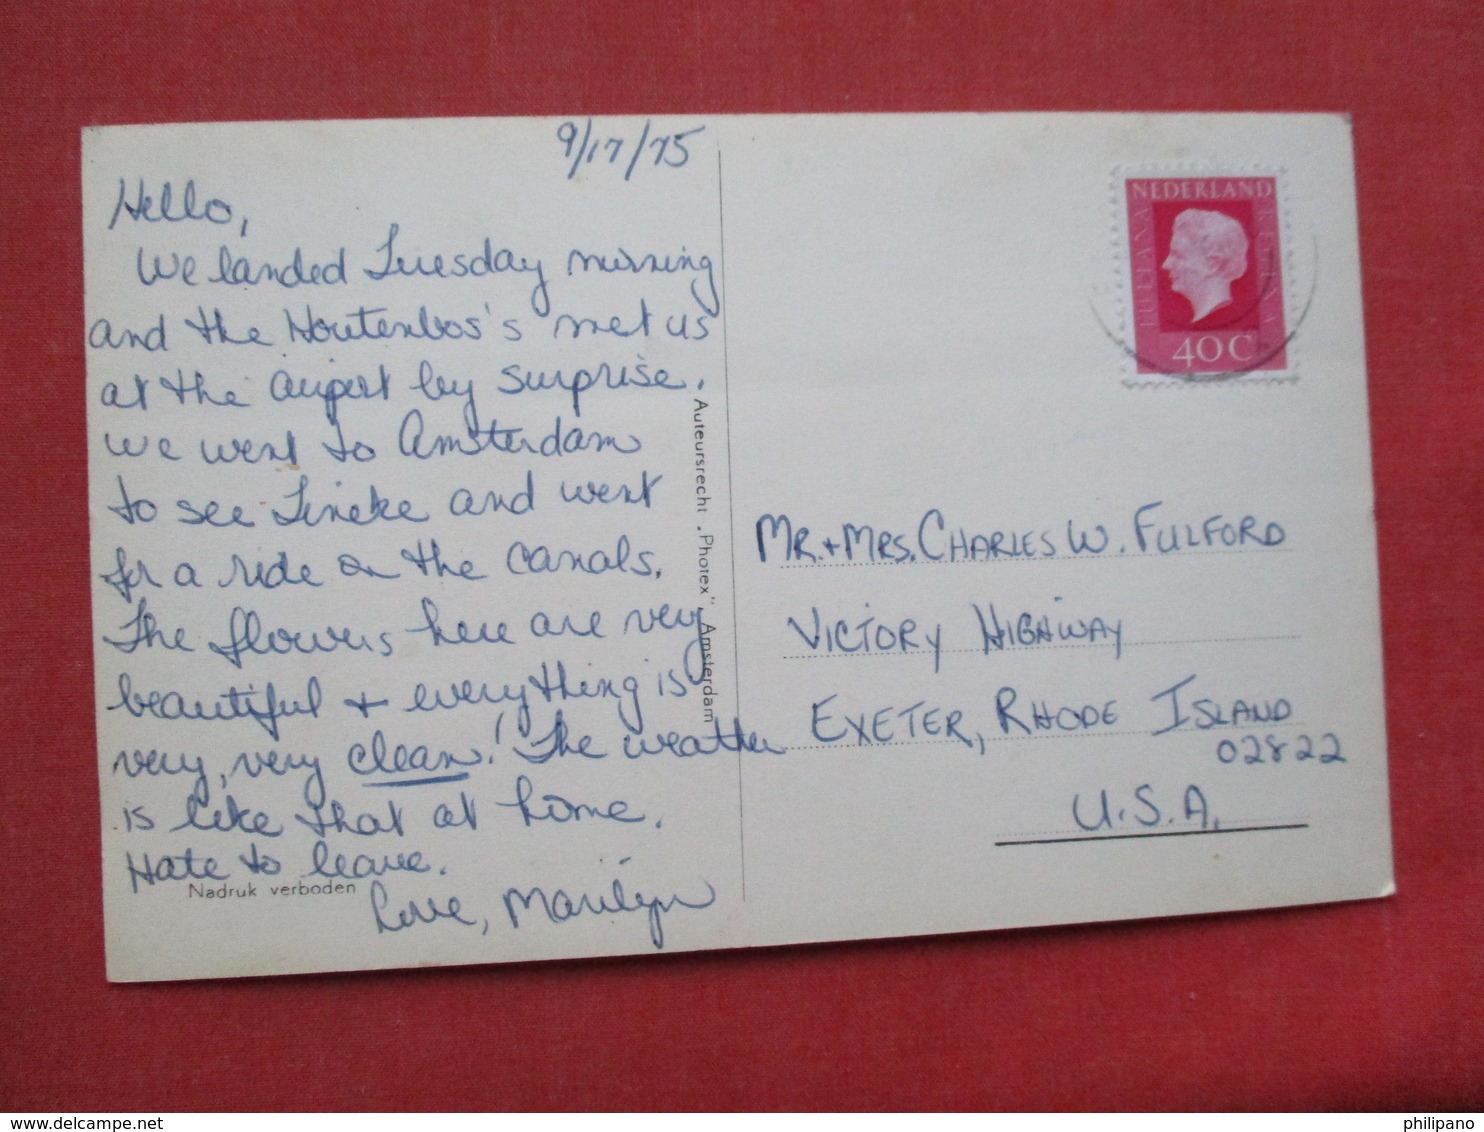 9/17/75
Hello,
We landed Tuesday morning
and the Houtenbos's met us
at the airport by surprise.
We went to Amsterdam
to see Tineke and went
for a ride on the canals.
The flowers here are very
beautiful + everything is
very, very clean! The weather
is like that at home.
Hate to leave.
Love, Marilyn
Nadruk verboden
Auteursrecht „Photex" Amsterdam
NEDERLAND
JULIANA REGINA
40 C
MR. + MRS. CHARLES W. FULFORD
VICTORY HIGHWAY
EXETER, RHODE ISLAND
02822
U.S.A.
delcampe.net
philipano